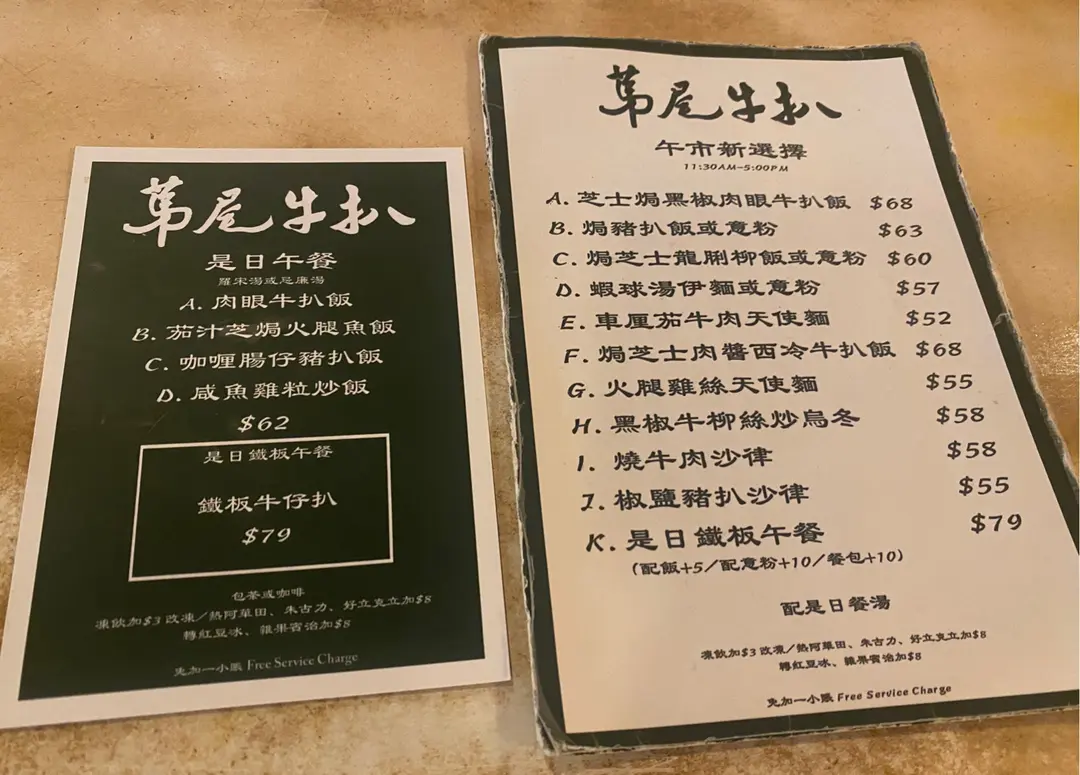 第尾牛扒
是日午餐
羅宋湯或忌廉湯
A. 肉眼牛扒飯
B. 茄汁芝焗火腿魚飯
C. 咖喱腸仔豬扒飯
D. 咸魚雞粒炒飯
$62
是日鐵板午餐
鐵板牛仔扒
$79
包茶或咖啡
凍飲加$3 改凍/熱阿華田、朱古力、好立克立加$8
轉紅豆冰、雜果賓治加$8
免加一小賬 Free Service Charge
第尾牛扒
午市新選擇
11:30AM-5:00PM
A. 芝士焗黑椒肉眼牛扒飯 $68
B. 焗豬扒飯或意粉 $63
C. 焗芝士龍脷柳飯或意粉 $60
D. 蝦球湯伊麵或意粉 $57
E. 車厘茄牛肉天使麵 $52
F. 焗芝士肉醬西冷牛扒飯 $68
G. 火腿雞絲天使麵 $55
H. 黑椒牛柳絲炒烏冬 $58
I. 燒牛肉沙律 $58
J. 椒鹽豬扒沙律 $55
K. 是日鐵板午餐 $79
(配飯+5/配意粉+10/餐包+10)
配是日餐湯
凍飲加$3 改凍/熱阿華田、朱古力、好立克立加$8
轉紅豆冰、雜果賓治加$8
免加一小賬 Free Service Charge